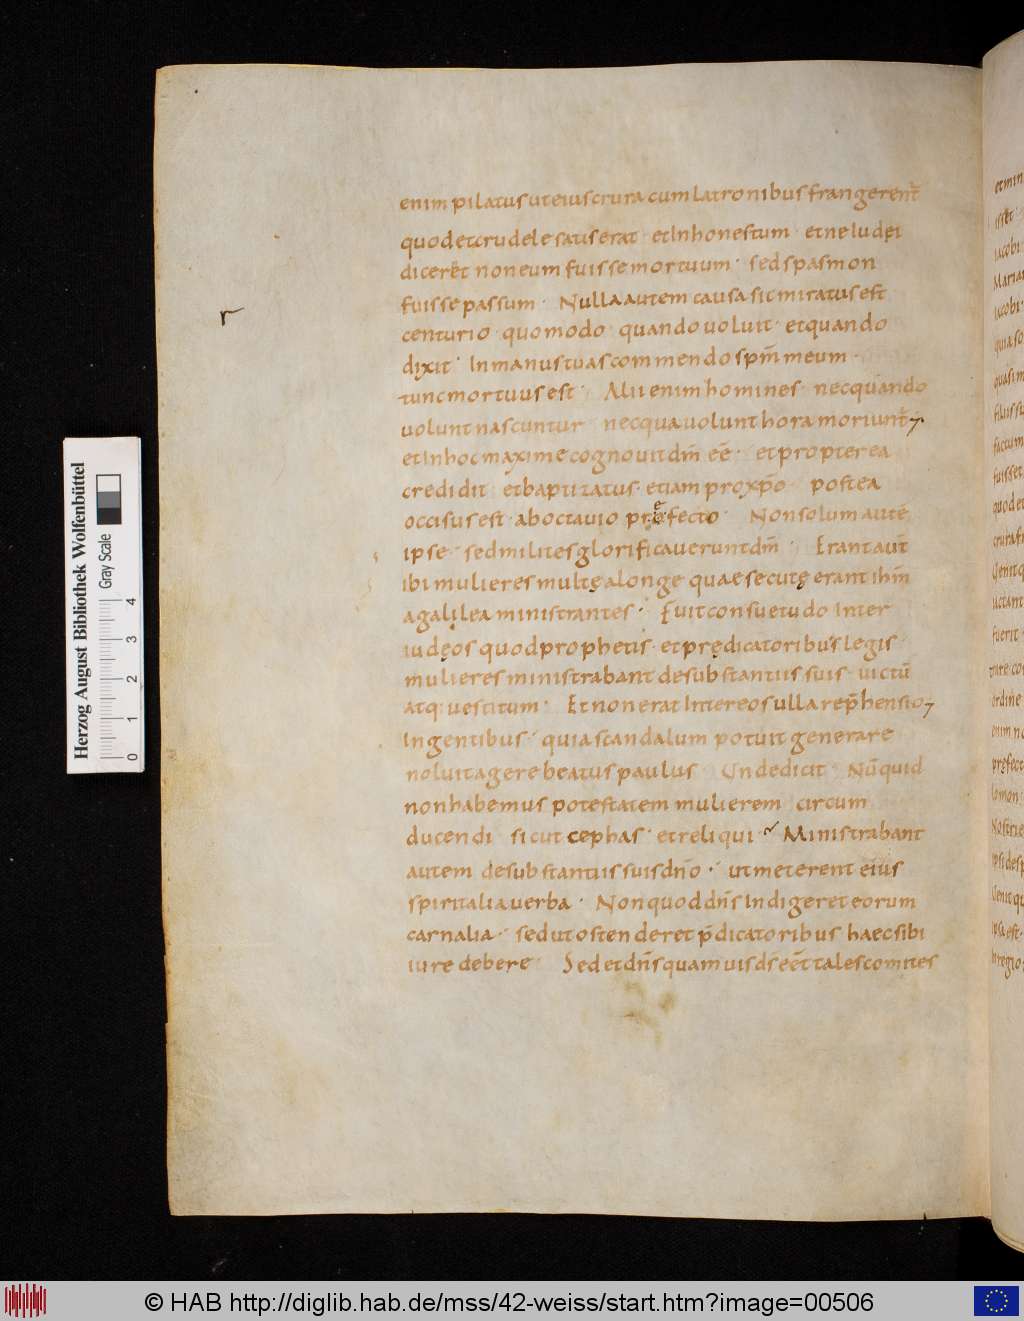 enim pilatus ut eius crura cum latronibus frangerent̄
quod et crudele satis erat · et Inhonestum · et ne Iudęi
dicerēt non eum fuisse mortuum · sed spasmon
fuisse passum · Nulla autem causa sic miratus est
centurio · quomodo · quando uoluit · et quando
dixit · In manus tuas commendo sp̄m meum ·
tunc mortuus est · Alii enim homines · nec quando
uolunt nascuntur nec qua uolunt hora moriunt̄
et In hoc maxime cognouit dm̄ eē · et propterea
credidit et baptizatus · etiam pro xp̄o postea
occisus est · ab octauio pręfecto Non solum autē
ipse · sed milites glorificauerunt dm̄ · Erant aūt
ibi mulieres multę a longe quae secutę erant ihm̄
a galilea ministrantes · Fuit consuetudo Inter
iudęos quod prophetis · et prędicatoribus legis
mulieres ministrabant de substantiis suis uictū
atq· uestitum · Et non erat Inter eos ulla rep̄hensio
In gentibus · quia scandalum potuit generare
noluit agere beatus paulus Un dedicit Nūquid
non habemus potestatem mulierem circum
ducendi sicut cephas · et reliqui · Ministrabant
autem de substantiis suis dn̄o · ut meterent eius
spiritalia uerba · Non quod dn̄s Indigeret eorum
carnalia · sed ut ostenderet p̄dicatoribus haec sibi
iure debere · Sed et dn̄s quamuis ds̄ eēt tales comites
r
Herzog August Bibliothek Wolfenbüttel
Gray Scale
0 1 2 3 4
© HAB http://diglib.hab.de/mss/42-weiss/start.htm?image=00506